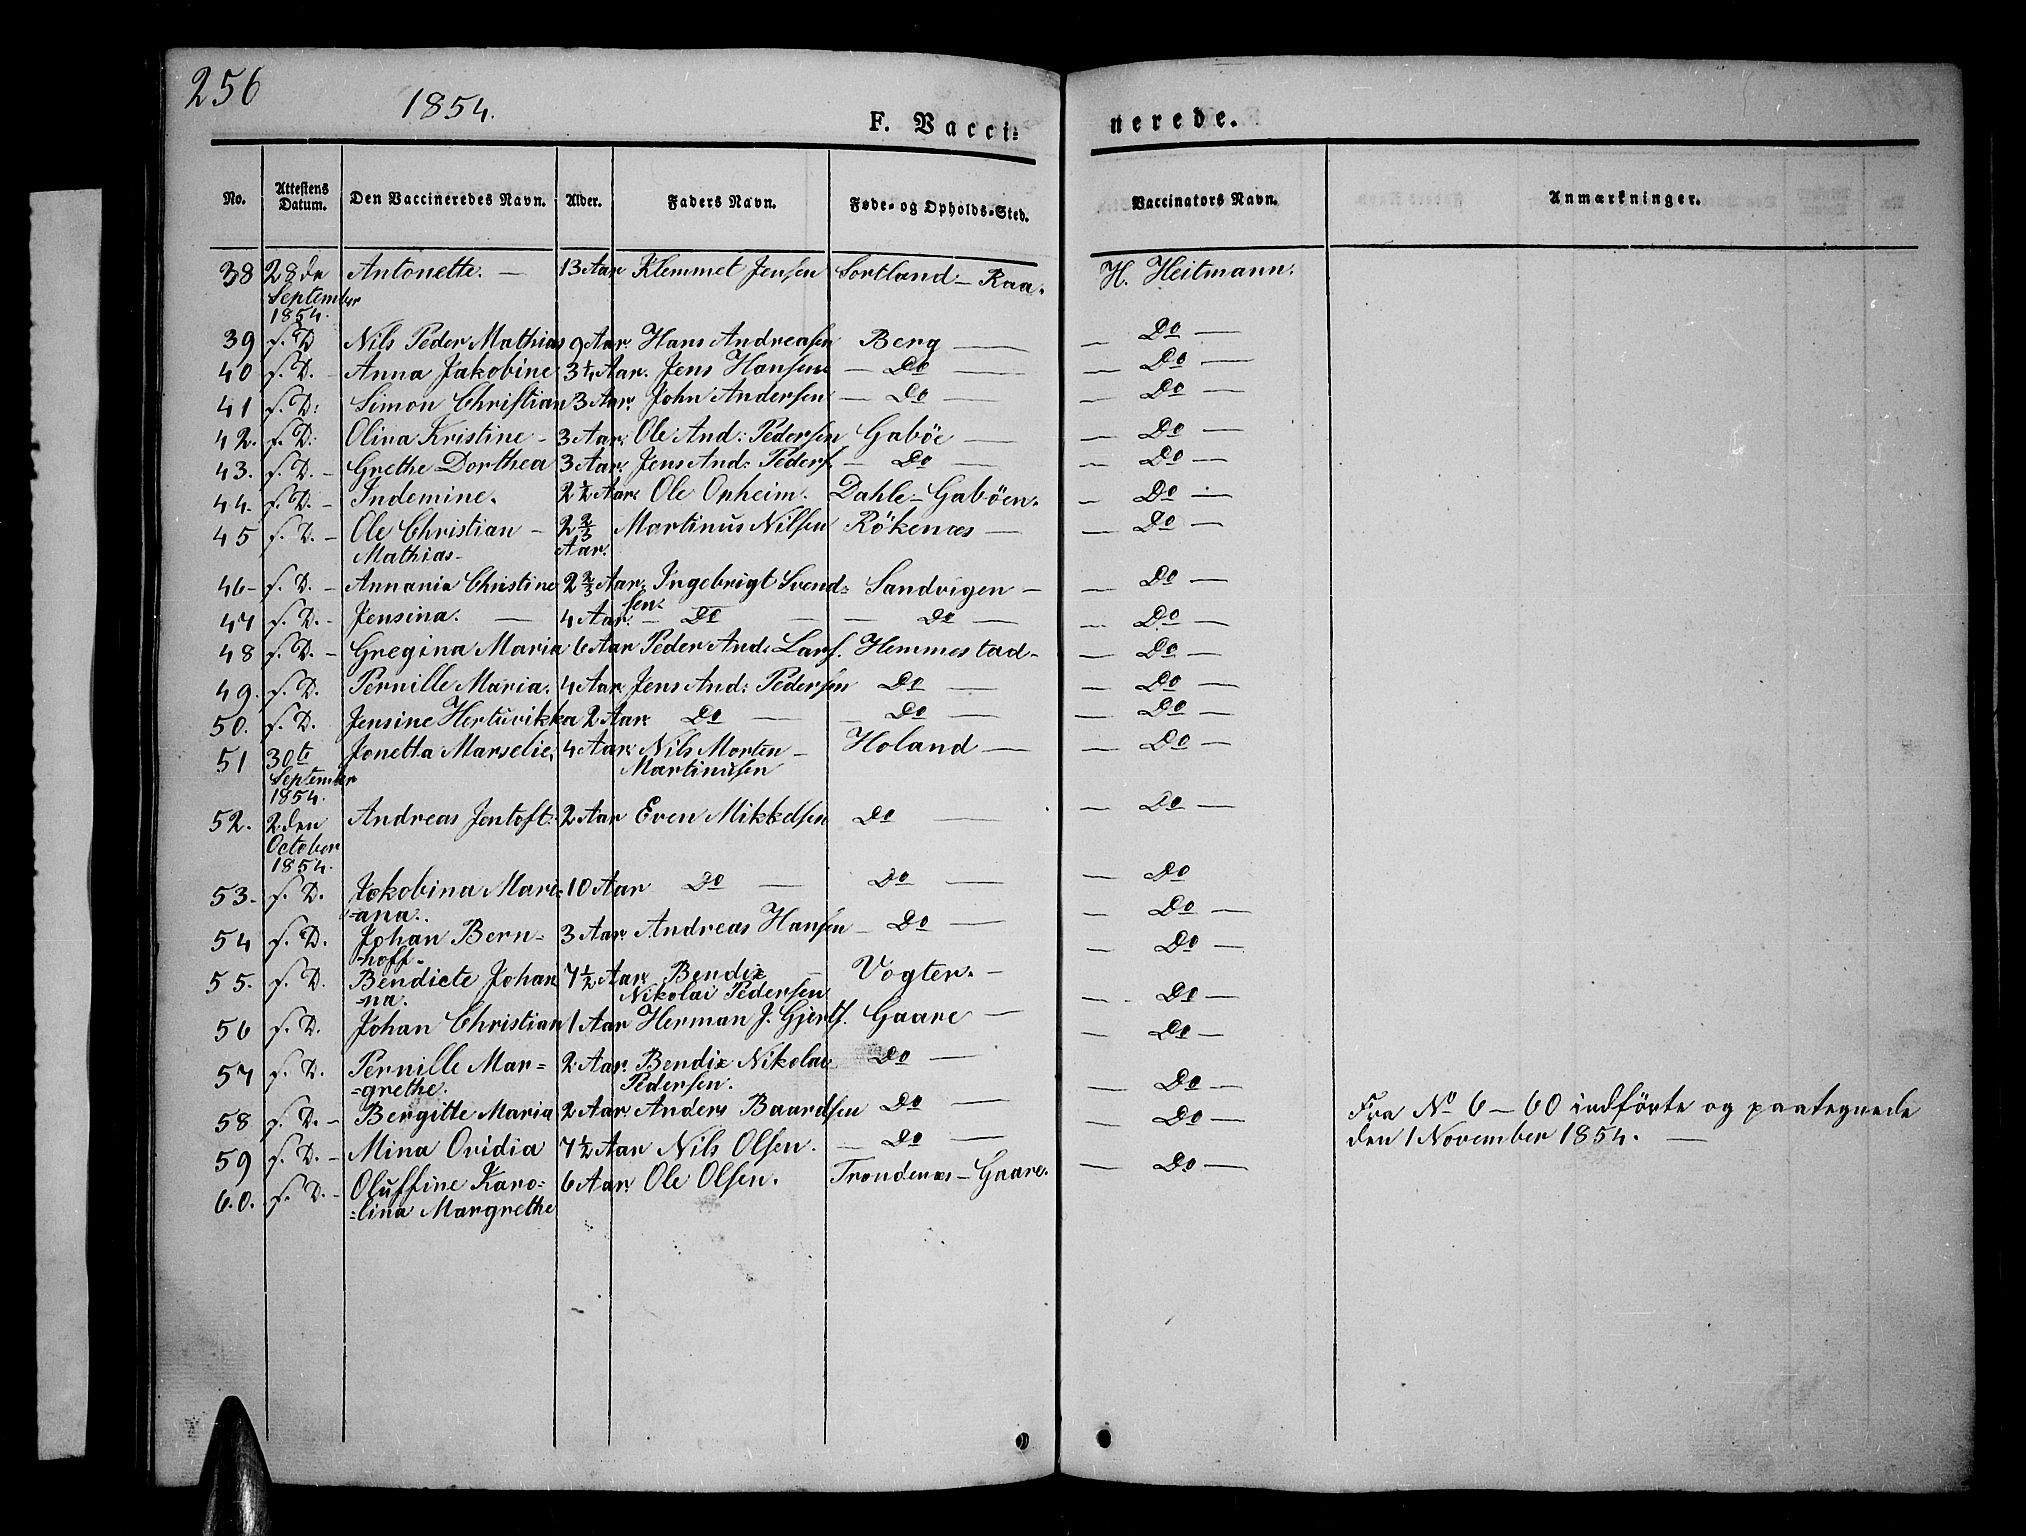 256
1854.
F. Vacci=nerede.
No. Attestens Datum. Den Vaccineredes Navn. Alder. Faders Navn. Føde- og Opholds-Sted. Vaccinators Navn. Anmærkninger.
38 28de September 1854. Antonette. — 13 Aar Klemmet Jensen Sortland — Raa. H. Heitmann.
39 f. D. Nils Peder Mathias 9 Aar. Hans Andreasen Berg — — Do —
40 f. D. — Anna Jakobine 3 1/4 Aar. Jens Hansen — Do — — Do —
41 f. D: Simon Christian 3 Aar. John Andersen — Do — — Do —
42. f. D: Olina Kristine — 3 Aar. Ole And: Pedersen Gaböe — — Do —
43. f. D. — Grethe Dorthea 3 Aar. Jens And: Peders. — Do — — Do —
44. f. D. — Indemine. 2 1/2 Aar. Ole Opheim. Dahle — Gaböen. — Do —
45 f. D. — Ole Christian — Mathias — 2 2/3 Aar. Martinus Nilsen Rökenæs — — Do —
46 — f. D. — Annania Christine 2 2/3 Aar. Ingebrigt Svend=sen. Sandvigen — — Do —
47 f. D. — Jensina. — 4 Aar. — Do — — Do — — Do —
48 f. D. — Gregina Maria 6 Aar Peder And: Lars. Hemmestad — — Do —
49. f. D. Pernille Maria. 4 Aar Jens And: Pedersen Do — — Do —
50. f. D. Jensine Hertuvikka 2 Aar. Do — — Do — — Do —
51 30te September 1854. Jonetta Marselie. 4 Aar. Nils Morten — Martinusen Holand — — Do —
52. 2den October 1854. Andreas Jentoft. 2 Aar Even Mikkelsen Do — — Do —
53. f. D. Jakobina Mari=ana. 10 Aar Do — Do — — Do
54 f. D. Johan Bern=hoff. 3 Aar. Andreas Hansen — Do — — Do —
55. f. D. Bendicte Johan=na. 7 1/2 Aar. Bendix — Nikolai Pedersen Vogter. — — Do —
56 f. D. Johan Christian 1 Aar Herman J. Gjerts. Gaare — — Do —
57 f. D. Pernille Mar=grethe. 2 Aar. Bendix Nikolai Pedersen. Do — — Do —
58 f. D. — Bergitte Maria 2 Aar. Anders Baardsen Do — — Do —
59 f. D. — Mina Ovidia 7 1/2 Aar Nils Olsen. — Do — — Do —
60. f. D. — Oluffine Karo=lina Margrethe 6 Aar. Ole Olsen. Trondenæs — Gaare. — Do —
Fra No 6 — 60 indförte og paategnede
den 1 November 1854. —